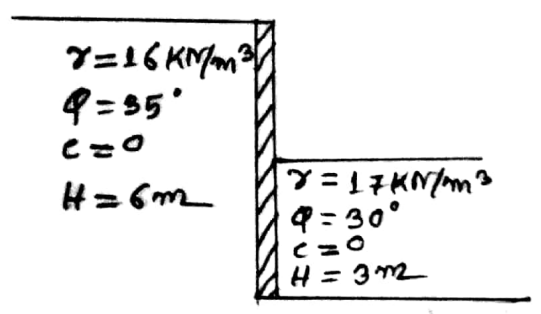 γ = 16 KN/m³
φ = 35°
c = 0
H = 6 m
γ = 17 KN/m³
φ = 30°
c = 0
H = 3 m